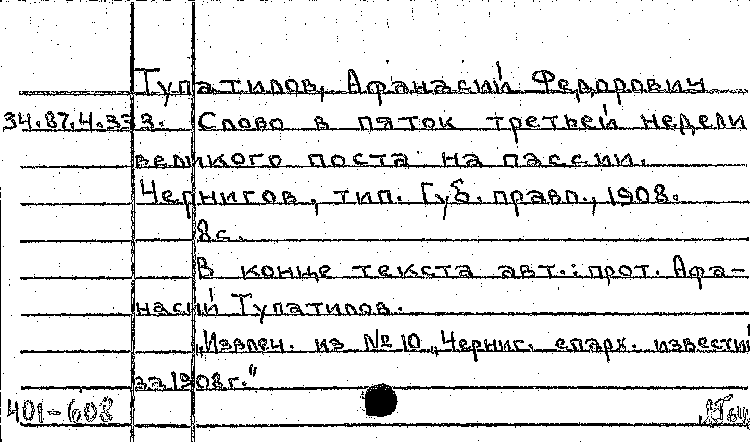 Тупатилов, Афанасий Федорович
34.87.4.333. Слово в пяток третьей недели
великого поста на пассии.
Чернигов, тип. Губ. правл., 1908.
8с.
В конце текста авт.: прот. Афа-
насий Тупатилов.
„Извлеч. из №10 „Черниг. епарх. известий
за 1908г."
401-608